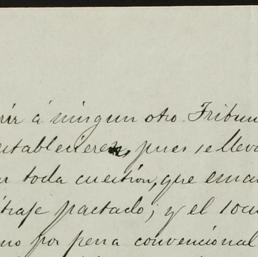 rir á ningun otro Tribun
establecieren, pues se lleva
toda cuestion, que ema
itraje pactado; y el
no por pena convencional